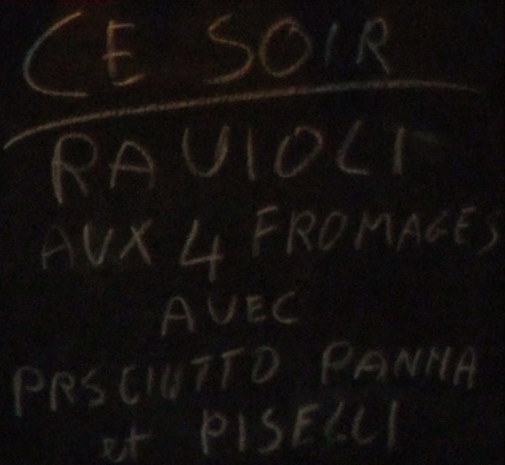 CE SOIR
RAVIOLI
AUX 4 FROMAGES
AVEC
PRSCIUTTO PANNA
et PISELLI